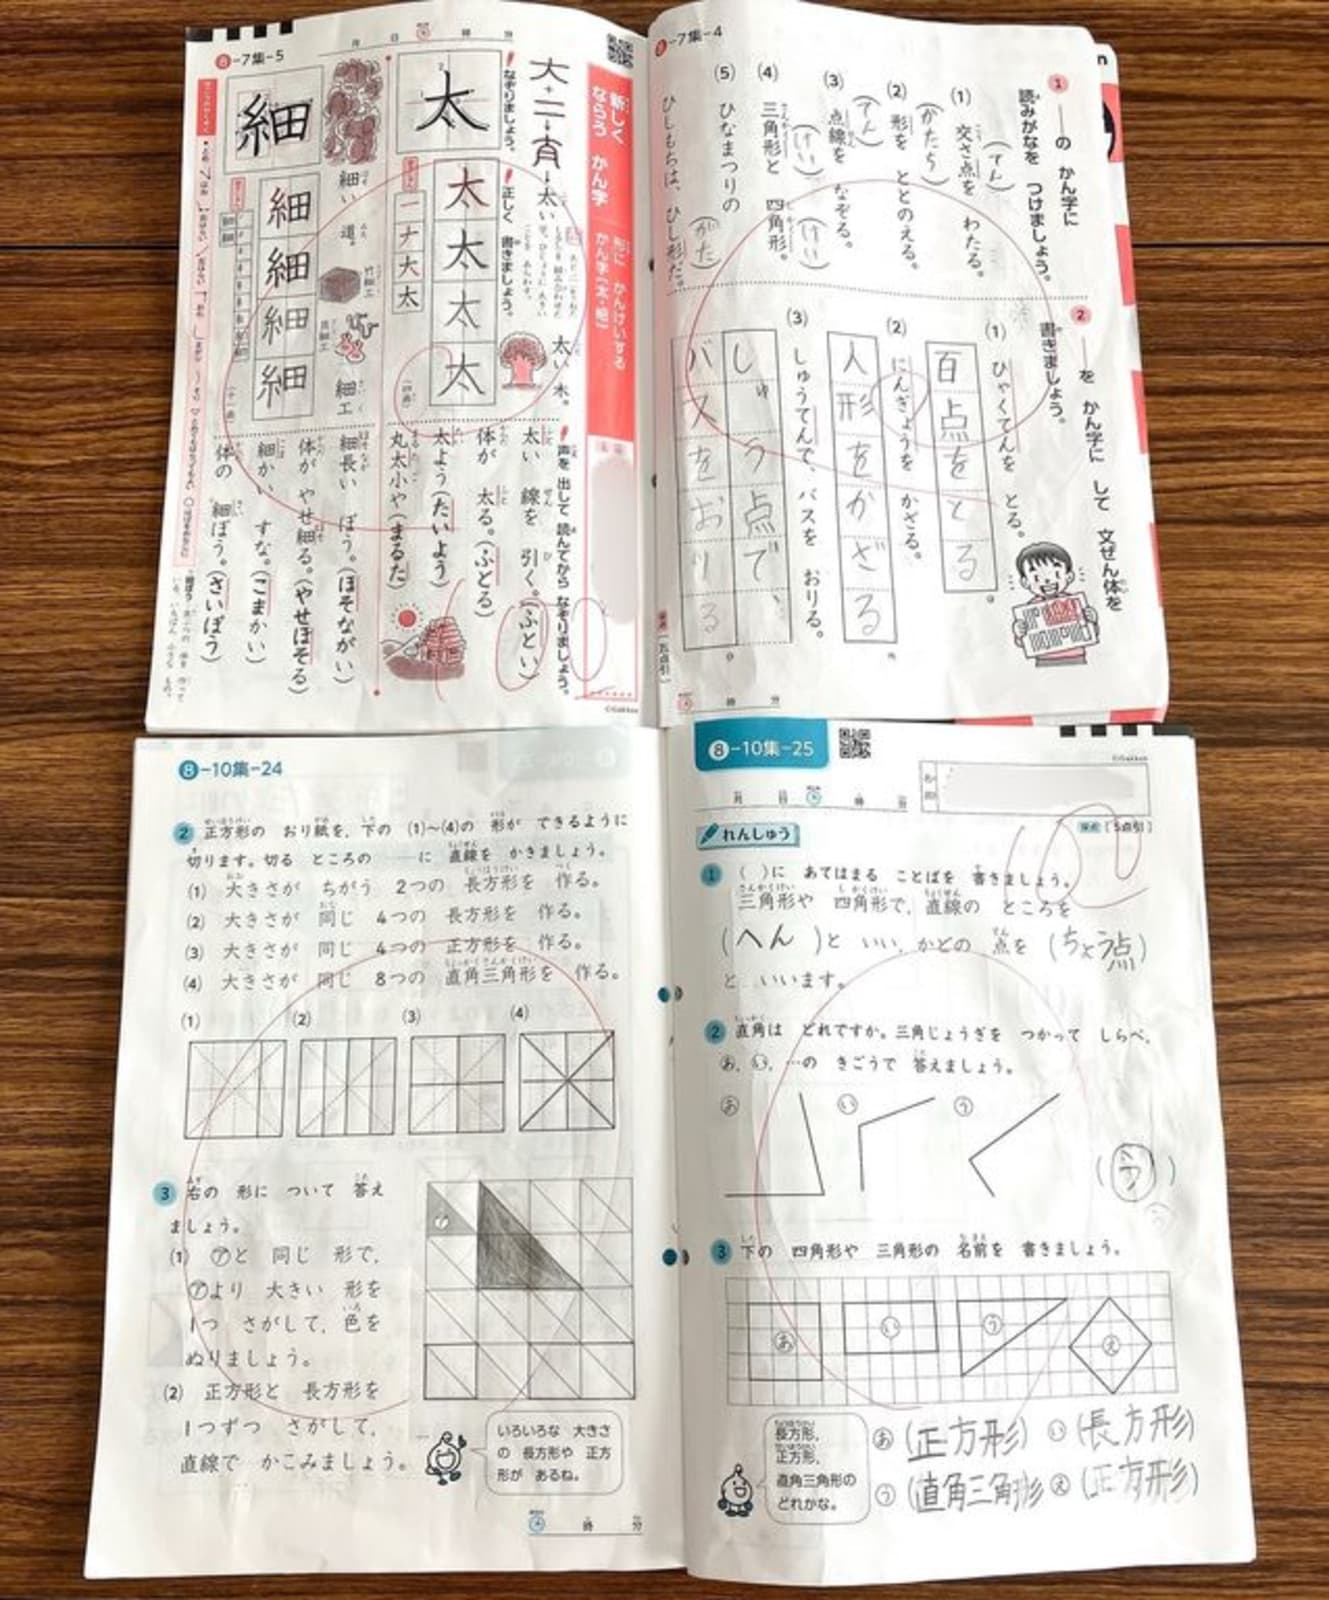 8-7集-4
1 ――の かん字に
読みがなを つけましょう。
(1) 交さ点を わたる。
(てん)
(かたち)
(2) 形を ととのえる。
(てん)
(3) 点線を なぞる。
(けい)
(けい)
(4) 三角形と 四角形。
(5) ひなまつりの
ひしもちは、ひし形だ。
(がた)
2 ――を かん字に して 文ぜん体を
書きましょう。
(1) ひゃくてんを とる。
百点をとる
(2) にんぎょうを かざる。
人形をかざる
(3) しゅうてんで、バスを おりる。
しゅう点で、
バスをおりる
8-7集-5
月 日 時 分
新しく
ならろ かん字
形に かんけいする
かん字「太・細」
大+二→夳→太
太い 木。
なぞりましょう。
太
正しく 書きましょう。
太
太
太
太
一ナ大太
(四画)
細
細い 道。
竹細工
細工
細
細
細
細
(十一画)
声を 出して 読んでから なぞりましょう。
太い 線を 引く。(ふとい)
体が 太る。(ふとる)
太よう(たいよう)
丸太小や(まるた)
細長い ぼう。(ほそながい)
体が やせ細る。(やせほそる)
細かい すな。(こまかい)
体の 細ぼう。(さいぼう)
©Gakken
時 分
8-10集-24
2 正方形の おり紙を、下の (1)~(4)の 形が できるように
切ります。切る ところの ――に 直線を かきましょう。
(1) 大きさが ちがう 2つの 長方形を 作る。
(2) 大きさが 同じ 4つの 長方形を 作る。
(3) 大きさが 同じ 4つの 正方形を 作る。
(4) 大きさが 同じ 8つの 直角三角形を 作る。
(1) (2) (3) (4)
3 右の 形に ついて 答え
ましょう。
(1) ㋐と 同じ 形で、
㋐より 大きい 形を
1つ さがして、色を
ぬりましょう。
(2) 正方形と 長方形を
1つずつ さがして、
直線で かこみましょう。
いろいろな 大きさ
の 長方形や 正方
形が あるね。
時 分
8-10集-25
©Gakken
月 日 時 分
名前
採点 [5点引]
れんしゅう
1 ( )に あてはまる ことばを 書きましょう。
三角形や 四角形で、直線の ところを
(へん)と いい、かどの 点を (ちょう点)
と いいます。
2 直角は どれですか。三角じょうぎを つかって しらべ、
あ、い、…の きごうで 答えましょう。
あ い う
(う)
3 下の 四角形や 三角形の 名前を 書きましょう。
あ い う え
長方形、
正方形、
直角三角形の
どれかな。
あ (正方形) い (長方形)
う (直角三角形) え (正方形)